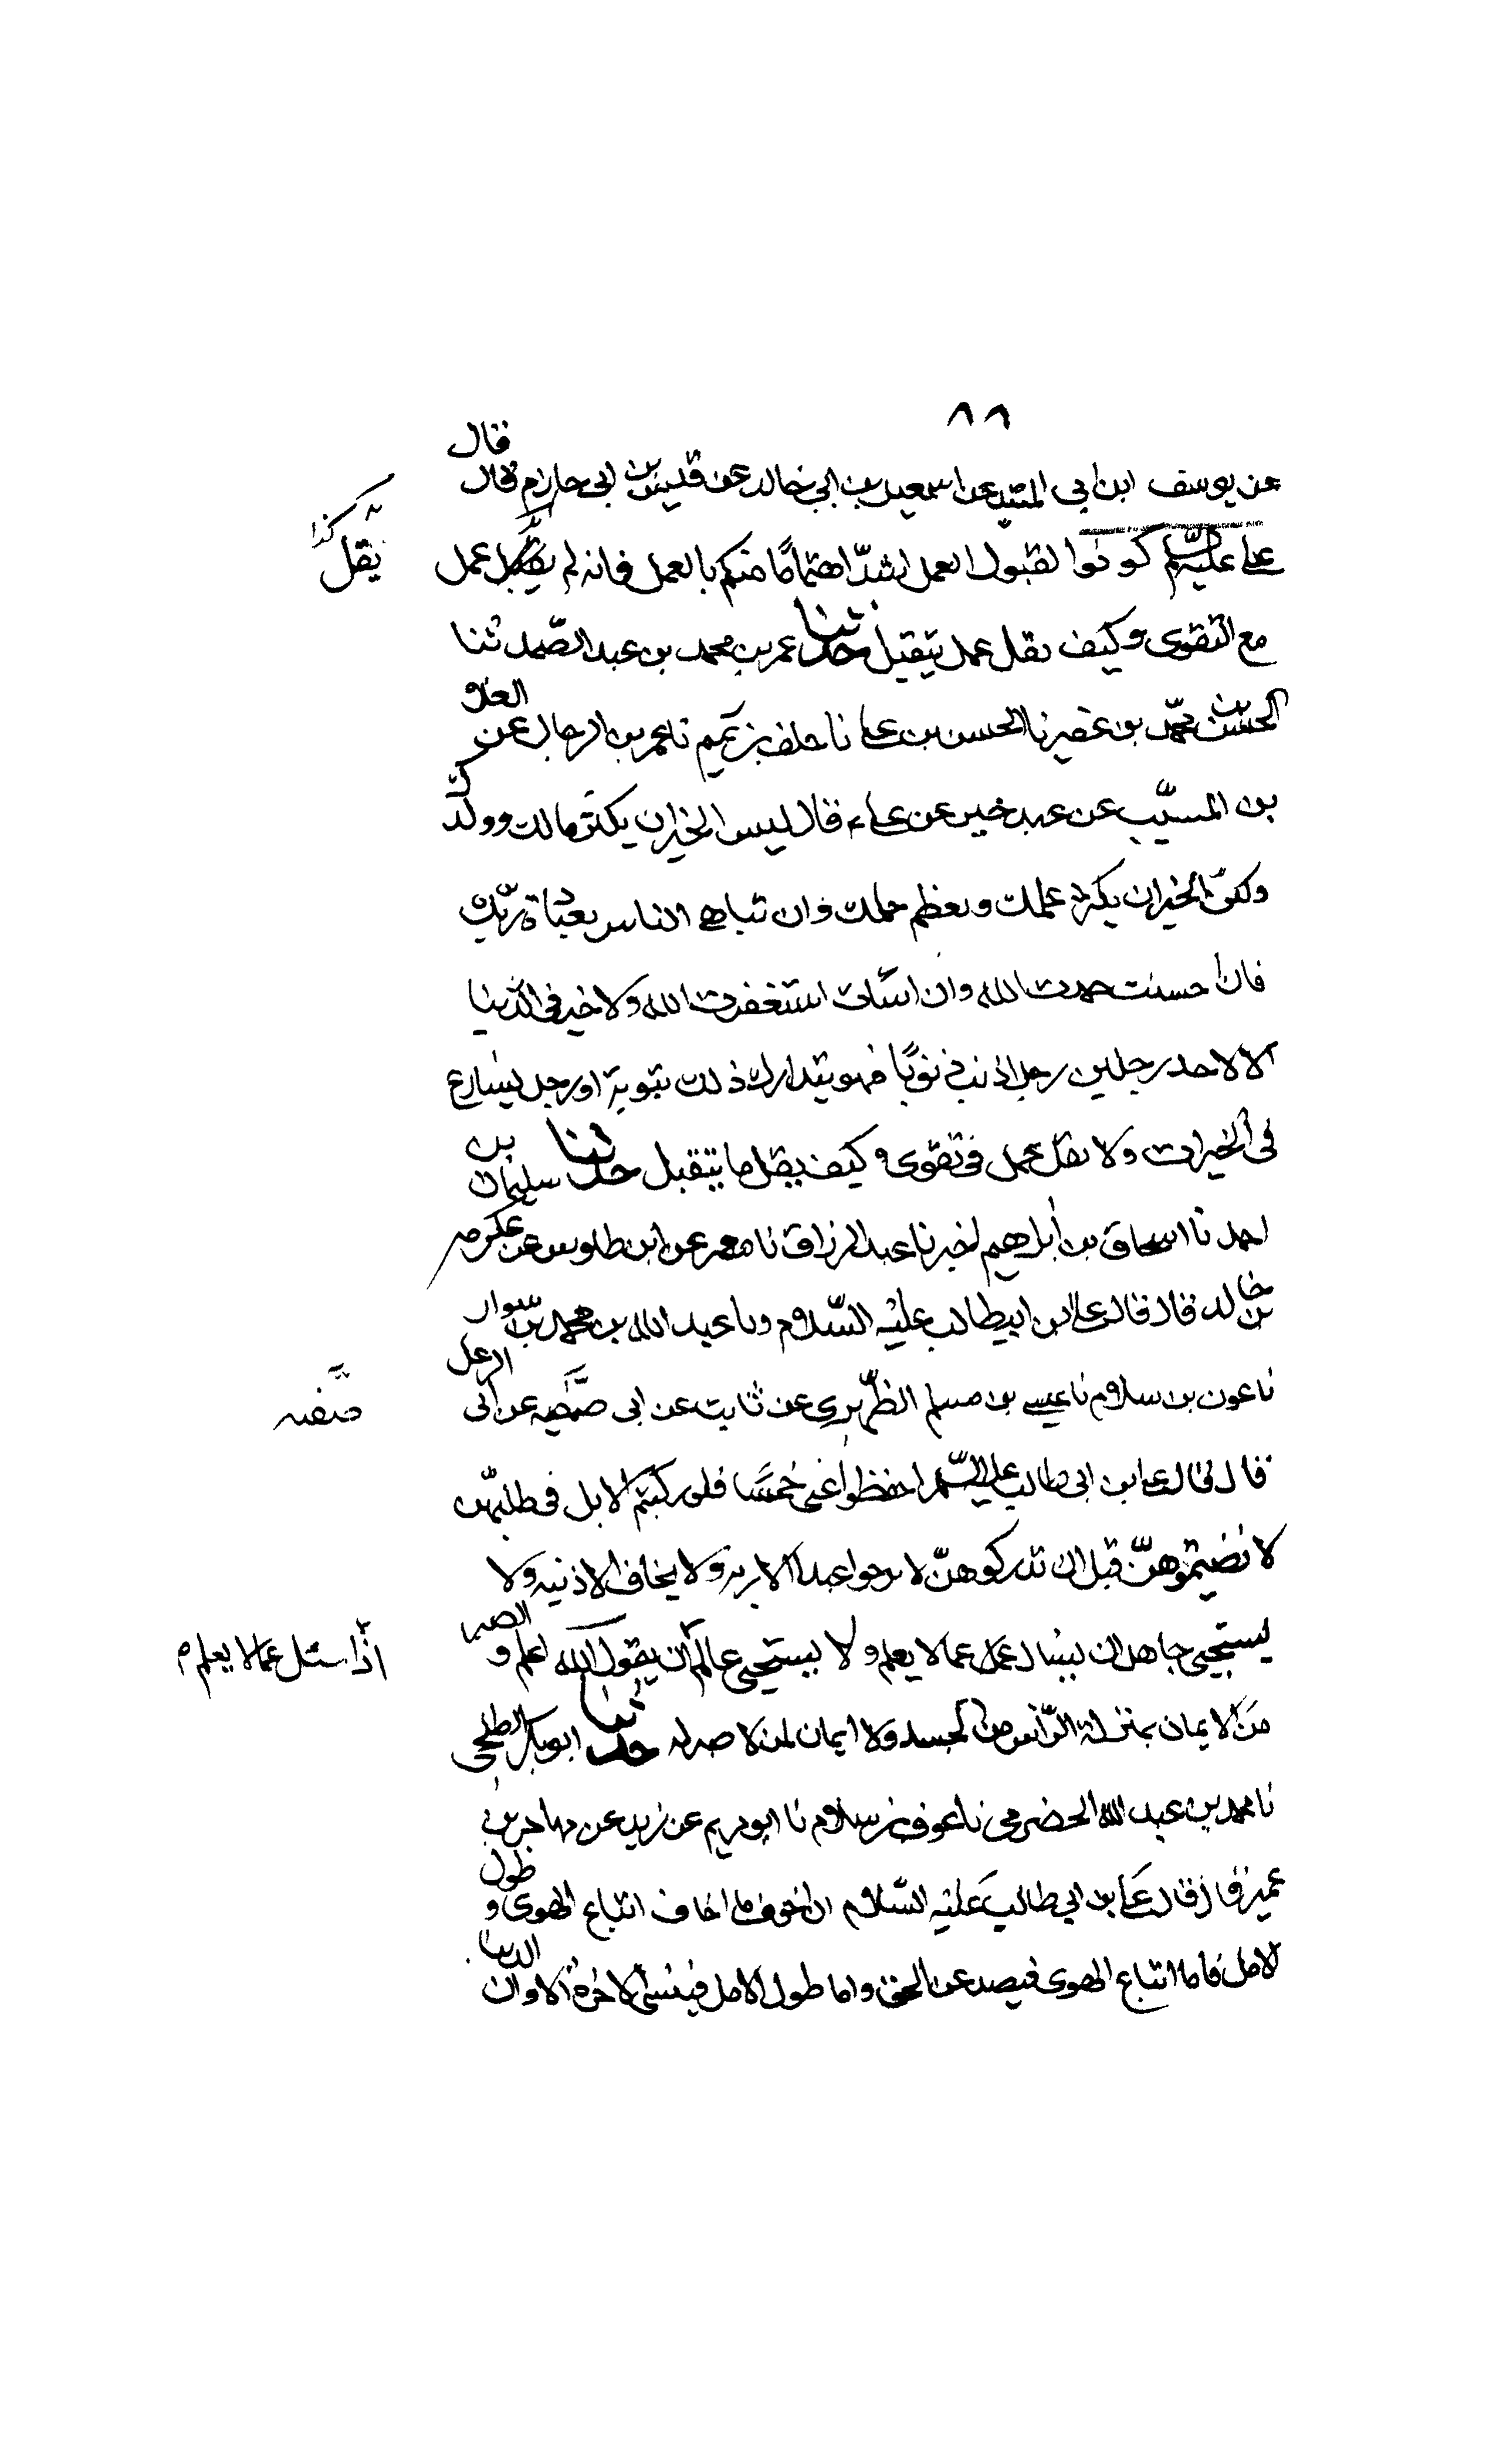 ٨٨
عن يوسف ابن ابى المتئد عن اسمعيل بن ابى خالد عن قيس بن ابى حازم قال قال
على عليه السلم كونوا لقبول العمل اشدّ اهتمامًا منكم بالعمل فانه لم يقل عمل
يقل كذا
مع التقوى وكيف يقل عمل يتقبل حدثنا عمر بن محمد بن عبد الصّمد ثنا
الحسن بن محمّد بن غفير نا الحسن بن على نا خلف بن تميم نا عمر بن الرحال عن العلا
بن المسيّب عن عبد خير عن على ء قال ليس الخير ان يكثر مالك وولدك
ولكنّ الخير ان يكثر عملك ويعظم حملك وان تباهى الناس بعبادة ربّك
فان احسنت حمدت الله وان اسأت استغفرت الله ولا خير فى الدّنيا
الا لاحد رجلين رجل اذنب ذنوبًا فهو يتدارك ذلك بتوبة او رجل يسارع
فى الخيرات ولا يقل عمل فى تقوى وكيف يقل ما يتقبل حدثنا سليمان بن
احمد نا اسحاق بن ابراهيم اخبرنا عبد الرزاق نا معمر عن ابن طاوس عن عكرمه
بن خالد قال قال على ابن ابيطالب عليه السّلام ونا عبد الله بن محمد بن سوار
نا عون بن سلام نا عيسى بن مسلم الطّهرى عن ثابت عن ابى عن ابى الزعل
قال قال على ابن ابى طالب عليه السّلم احفظوا عنى خمسًا فلو ركبتم الابل فى طلبهنّ
لا نضيتموهنّ قبل ان تدركوهنّ لا يرجوا عبد الا ربه ولا يخاف الا ذنبه ولا
يستحيى جاهل ان يسال عما لا يعلم ولا يستحيى عالم ان يقول الله اعلم و الصبر
اذا سئل عما لا يعلم ه
من الايمان بمنزلة الرّأس من الجسد ولا ايمان لمن لا صبر له حدثنا ابو بكر الطلحى
نا محمد بن عبد الله الحضرمى نا عون بن سلام نا ابو مريم عن زبيد عن مهاجر بن
عمير قال قال على بن ابى طالب عليه السّلام ان اخوف ما اخاف اتباع الهوى و طول
الامل فاما اتباع الهوى فيصد عن الحق واما طول الامل فينسى الاخرة الا وان الدنيا